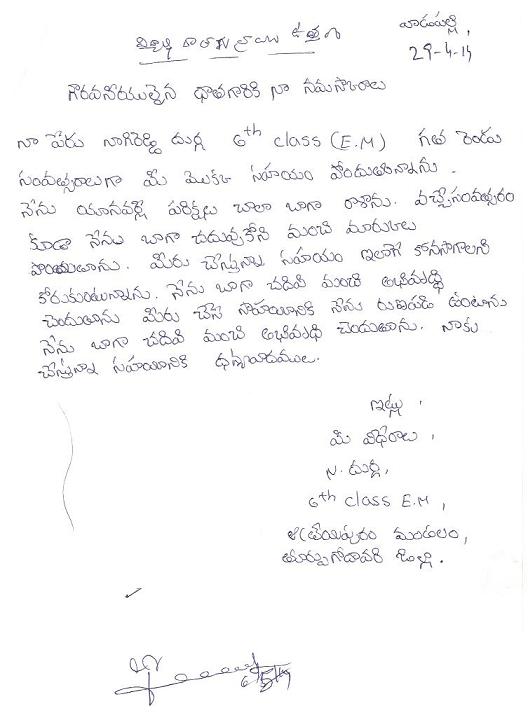 వాడపల్లి,
29-4-14
విద్యార్థి దాతకు వ్రాయు ఉత్తరం
గౌరవనీయులైన దాతగారికి నా నమస్కారాలు
నా పేరు నాగిరెడ్డి దుర్గ 6th class (E.M) గత రెండు
సంవత్సరాలుగా మీ మొక్క సహయం పొందుతున్నాను.
నేను యానివల్ పరిక్షలు చాలా బాగా రాశాను. వచ్చేసంవత్సరం
కూడా నేను బాగా చదువుకోని మంచి మారుకులు
పొందుతాను. మీరు చేస్తున్న సహయం ఇలాగే కొనసాగాలని
కోరుకుంటున్నాను. నేను బాగా చదివి మంచి అభివృద్ధి
చెందుతాను మీరు చేసే సాహయానికి నేను రుణపడి ఉంటాను
నేను బాగా చదివి మంచి అభివృధి చెందుతాను. నాకు
చేస్తున్న సహయానికి ధన్యవాదములు.
ఇట్లు,
మీ విధేరాలు,
న. దుర్గ,
6th class E.M,
ఆత్రేయపురం మండలం,
తూర్పుగోదావరి జిల్లా.